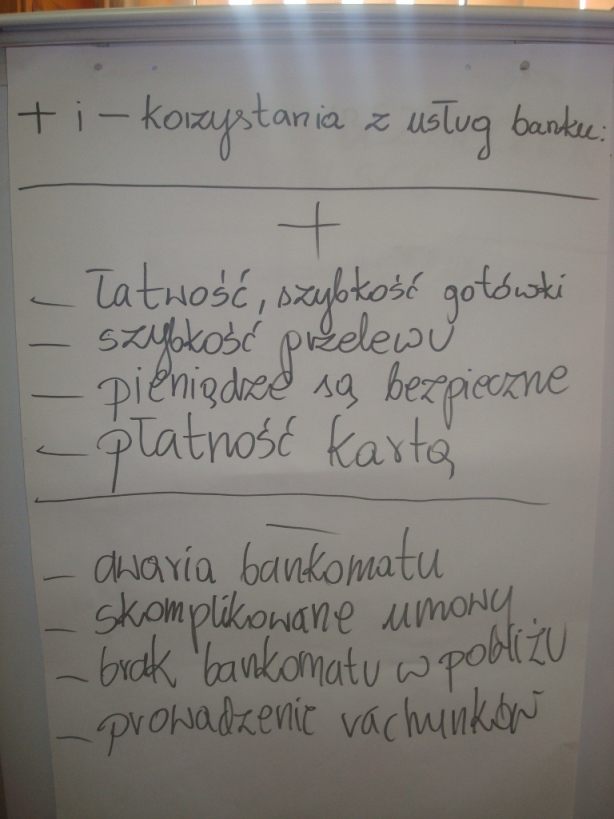 + i - korzystania z usług banku:
+
- łatwość, szybkość gotówki
- szybkość przelewu
- pieniądze są bezpieczne
- płatność kartą
-
- awaria bankomatu
- skomplikowane umowy
- brak bankomatu w pobliżu
- prowadzenie rachunków